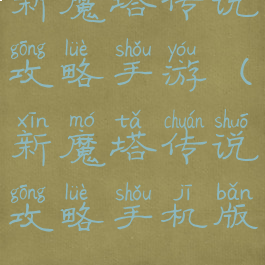 新魔塔传说
gōng lüè shǒu yóu
攻略手游（
xīn mó tǎ chuán shuō
新魔塔传说
gōng lüè shǒu jī bǎn
攻略手机版